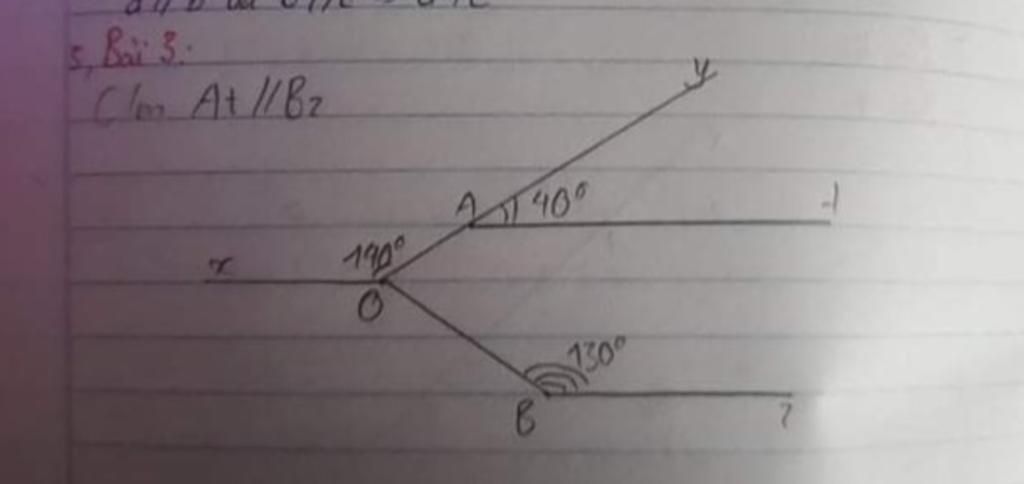 5, Bài 3:
C/m At // Bz
y
A 40° t
140°
x
O
130°
B z